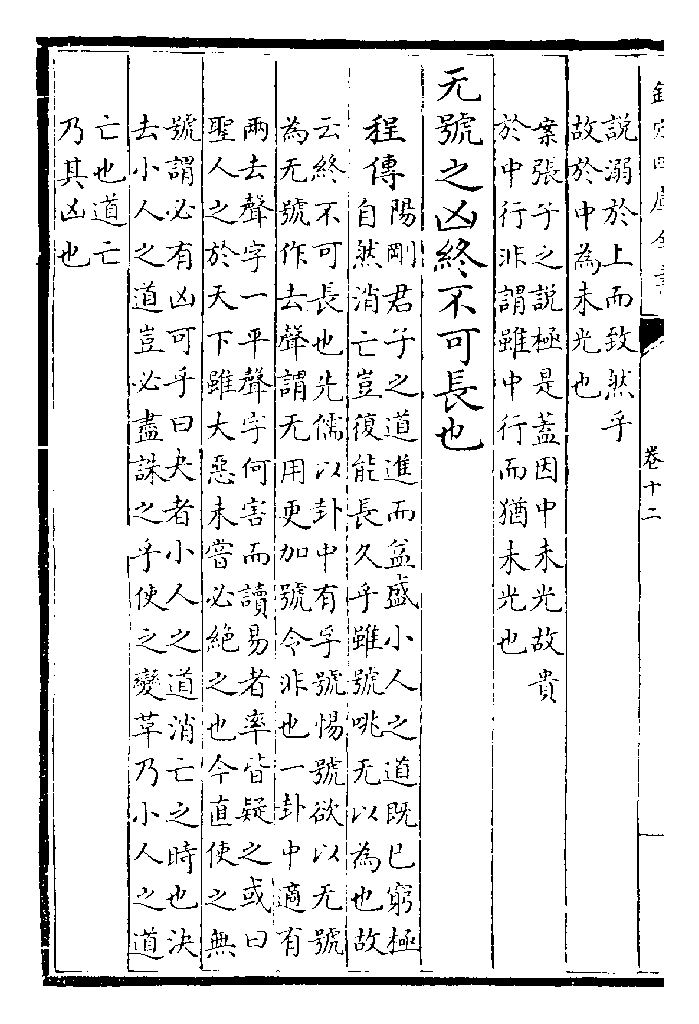 欽定四庫全書
卷十二
說溺於上而致然乎
故於中為未光也
案張子之說極是蓋因中未光故貴
於中行非謂雖中行而猶未光也
无號之凶終不可長也
程傳陽剛君子之道進而益盛小人之道既已窮極
自然消亡豈復能長久乎雖號咷无以為也故
云終不可長也先儒以卦中有孚號惕號欲以无號
為无號作去聲謂无用更加號令非也一卦中適有
兩去聲字一平聲字何害而讀易者率皆疑之或曰
聖人之於天下雖大惡未嘗必絶之也今直使之無
號謂必有凶可乎曰夬者小人之道消亡之時也決
去小人之道豈必盡誅之乎使之變革乃小人之道
亡也道亡
乃其凶也